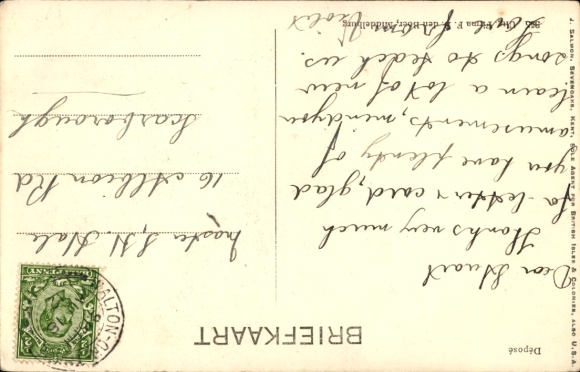 BRIEFKAART
Déposé
Dear Stuart
Thanks very much
for letter & card, glad
you have plenty of
amusements, mind you
learn a lot of new
songs to teach us.
Love from
Master S. H. Hale
16 Albion Rd
Scarborough
Uitg. Firma F. B. den Boer, Middelburg
J. SALMON, SEVENOAKS, KENT, SOLE AGENT FOR BRITISH ISLES & COLONIES, ALSO U.S.A.